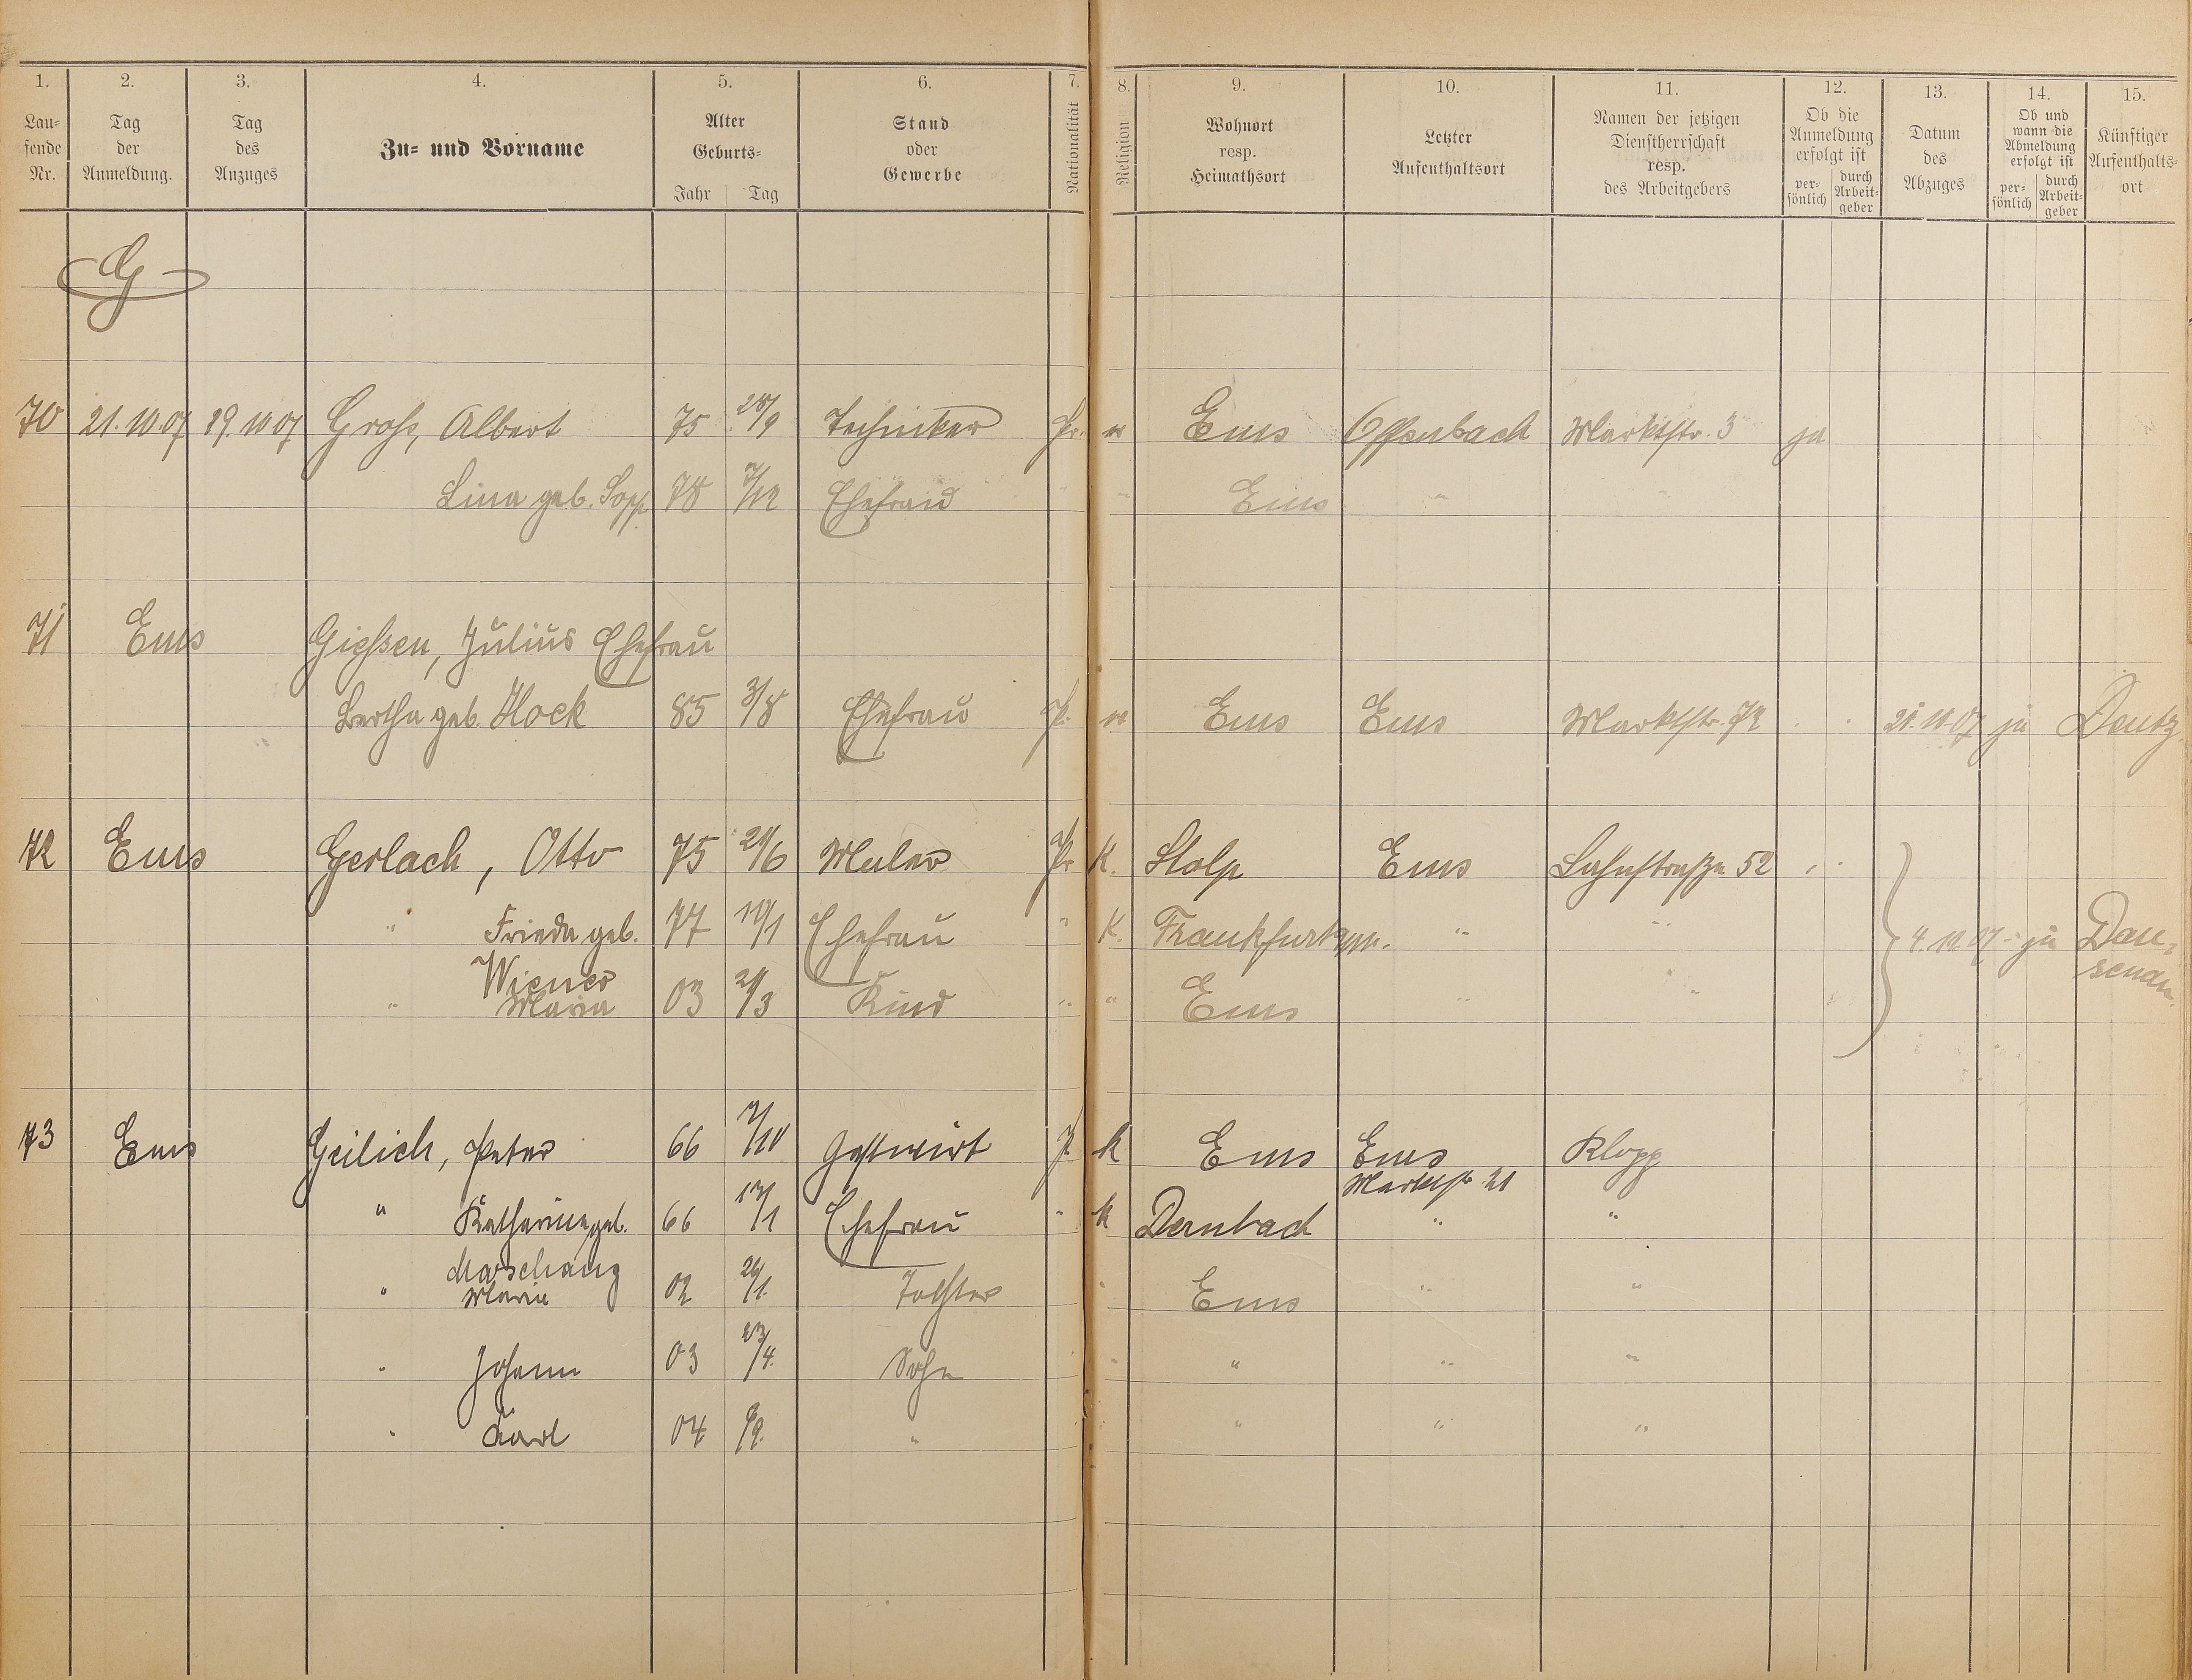 1. 2. 3. 4. 5. 6. 7. 8. 9. 10. 11. 12. 13. 14. 15.
Lau=
fende
Nr.
Tag
der
Anmeldung.
Tag
des
Anzuges
Zu= und Vorname
Alter
Geburts=
Jahr Tag
Stand
oder
Gewerbe
Nationalität
Religion
Wohnort
resp.
Heimathsort
Letzter
Aufenthaltsort
Namen der jetzigen
Dienstherrschaft
resp.
des Arbeitgebers
Ob die
Anmeldung
erfolgt ist
per=
sönlich
durch
Arbeit=
geber
Datum
des
Abzuges
Ob und
wann die
Abmeldung
erfolgt ist
per=
sönlich
durch
Arbeit=
geber
Künftiger
Aufenthalts=
ort
G
70 21.10.07 19.10 07 Groß, Albert 75 28/9 Techniker Pr. Ems Offenbach Marktstr. 3 ja
Lina geb. Sopp 78 7/12 Ehefrau " " Ems " "
71 Ems Gießen, Julius Ehefrau
Bertha geb. Hock 85 3/8 Ehefrau P. Ems Ems Marktstr. 72 " " 21.10.07 ja Deutz
72 Ems Gerlach, Otto 75 Maler Pr K. Stolp Ems Lahnstraße 52 " "
" Frieda geb. 77 Ehefrau " K. Frankfurt a/M. " " 4.12.07 ja Dau=
senau.
Wiener
" Maria 03 21/3 Kind " " Ems " "
73 Ems Geilich, Peter 66 7/10 Gastwirt P K Ems Ems Klopp
Marktstr. 21
" Katharina geb. 66 17/1 Ehefrau " K Dernbach " "
Marschang
" Maria 02 26/1. Tochter " Ems " "
" Johann 03 23/4. Sohn " " " "
" Karl 04 9/9. " " " "